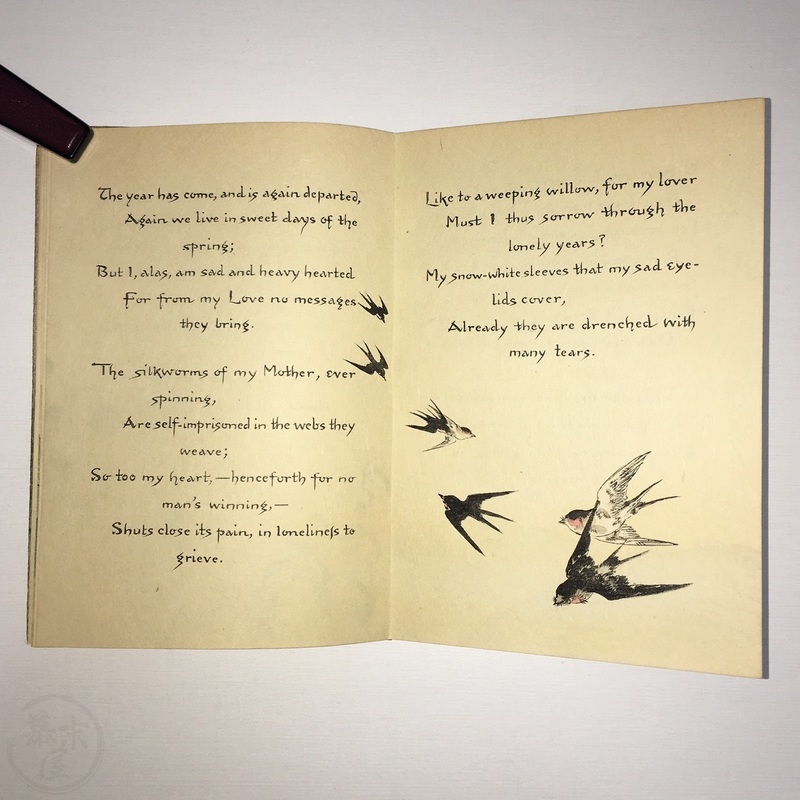 The year has come, and is again departed,
Again we live in sweet days of the
spring;
But I, alas, am sad and heavy hearted
For from my Love no messages
they bring.
The silkworms of my Mother, ever
spinning,
Are self-imprisoned in the webs they
weave;
So too my heart,—henceforth for no
man's winning,—
Shuts close its pain, in lonelineſs to
grieve.
Like to a weeping willow, for my lover
Must I thus sorrow through the
lonely years?
My snow-white sleeves that my sad eye-
lids cover,
Already they are drenched with
many tears.